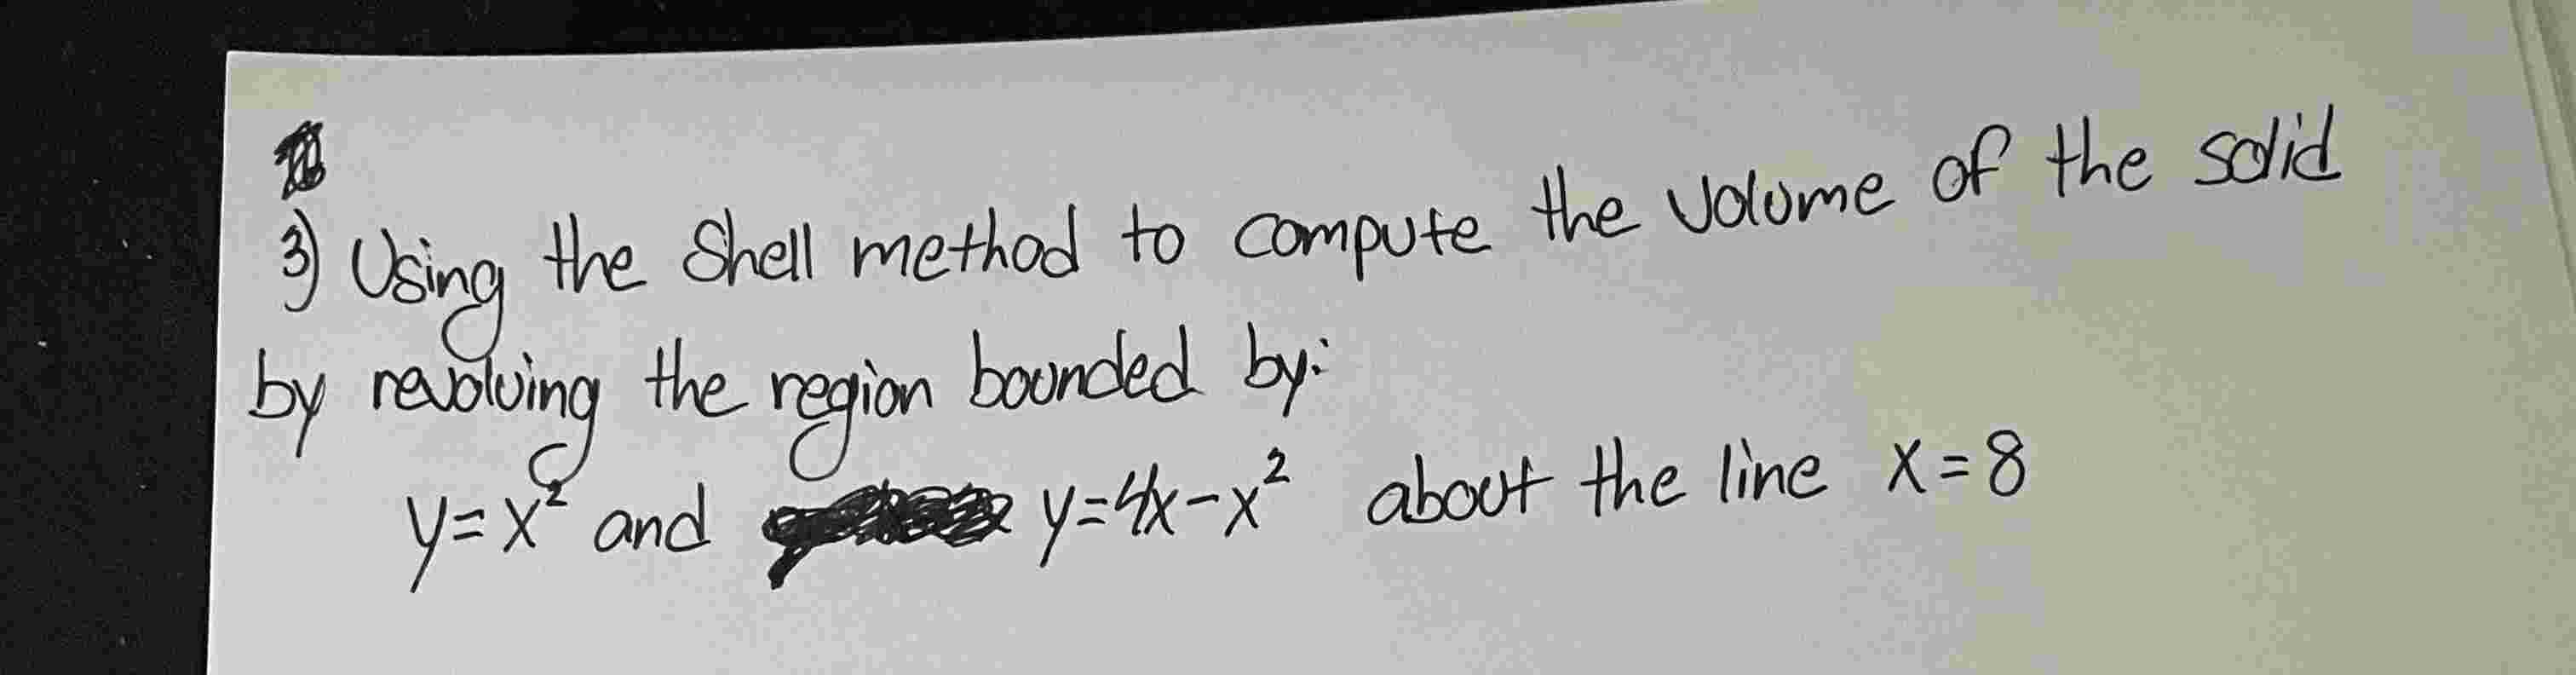 3) Using the Shell method to compute the volume of the solid
by revolving the region bounded by:
y=x² and y=4x-x² about the line x=8